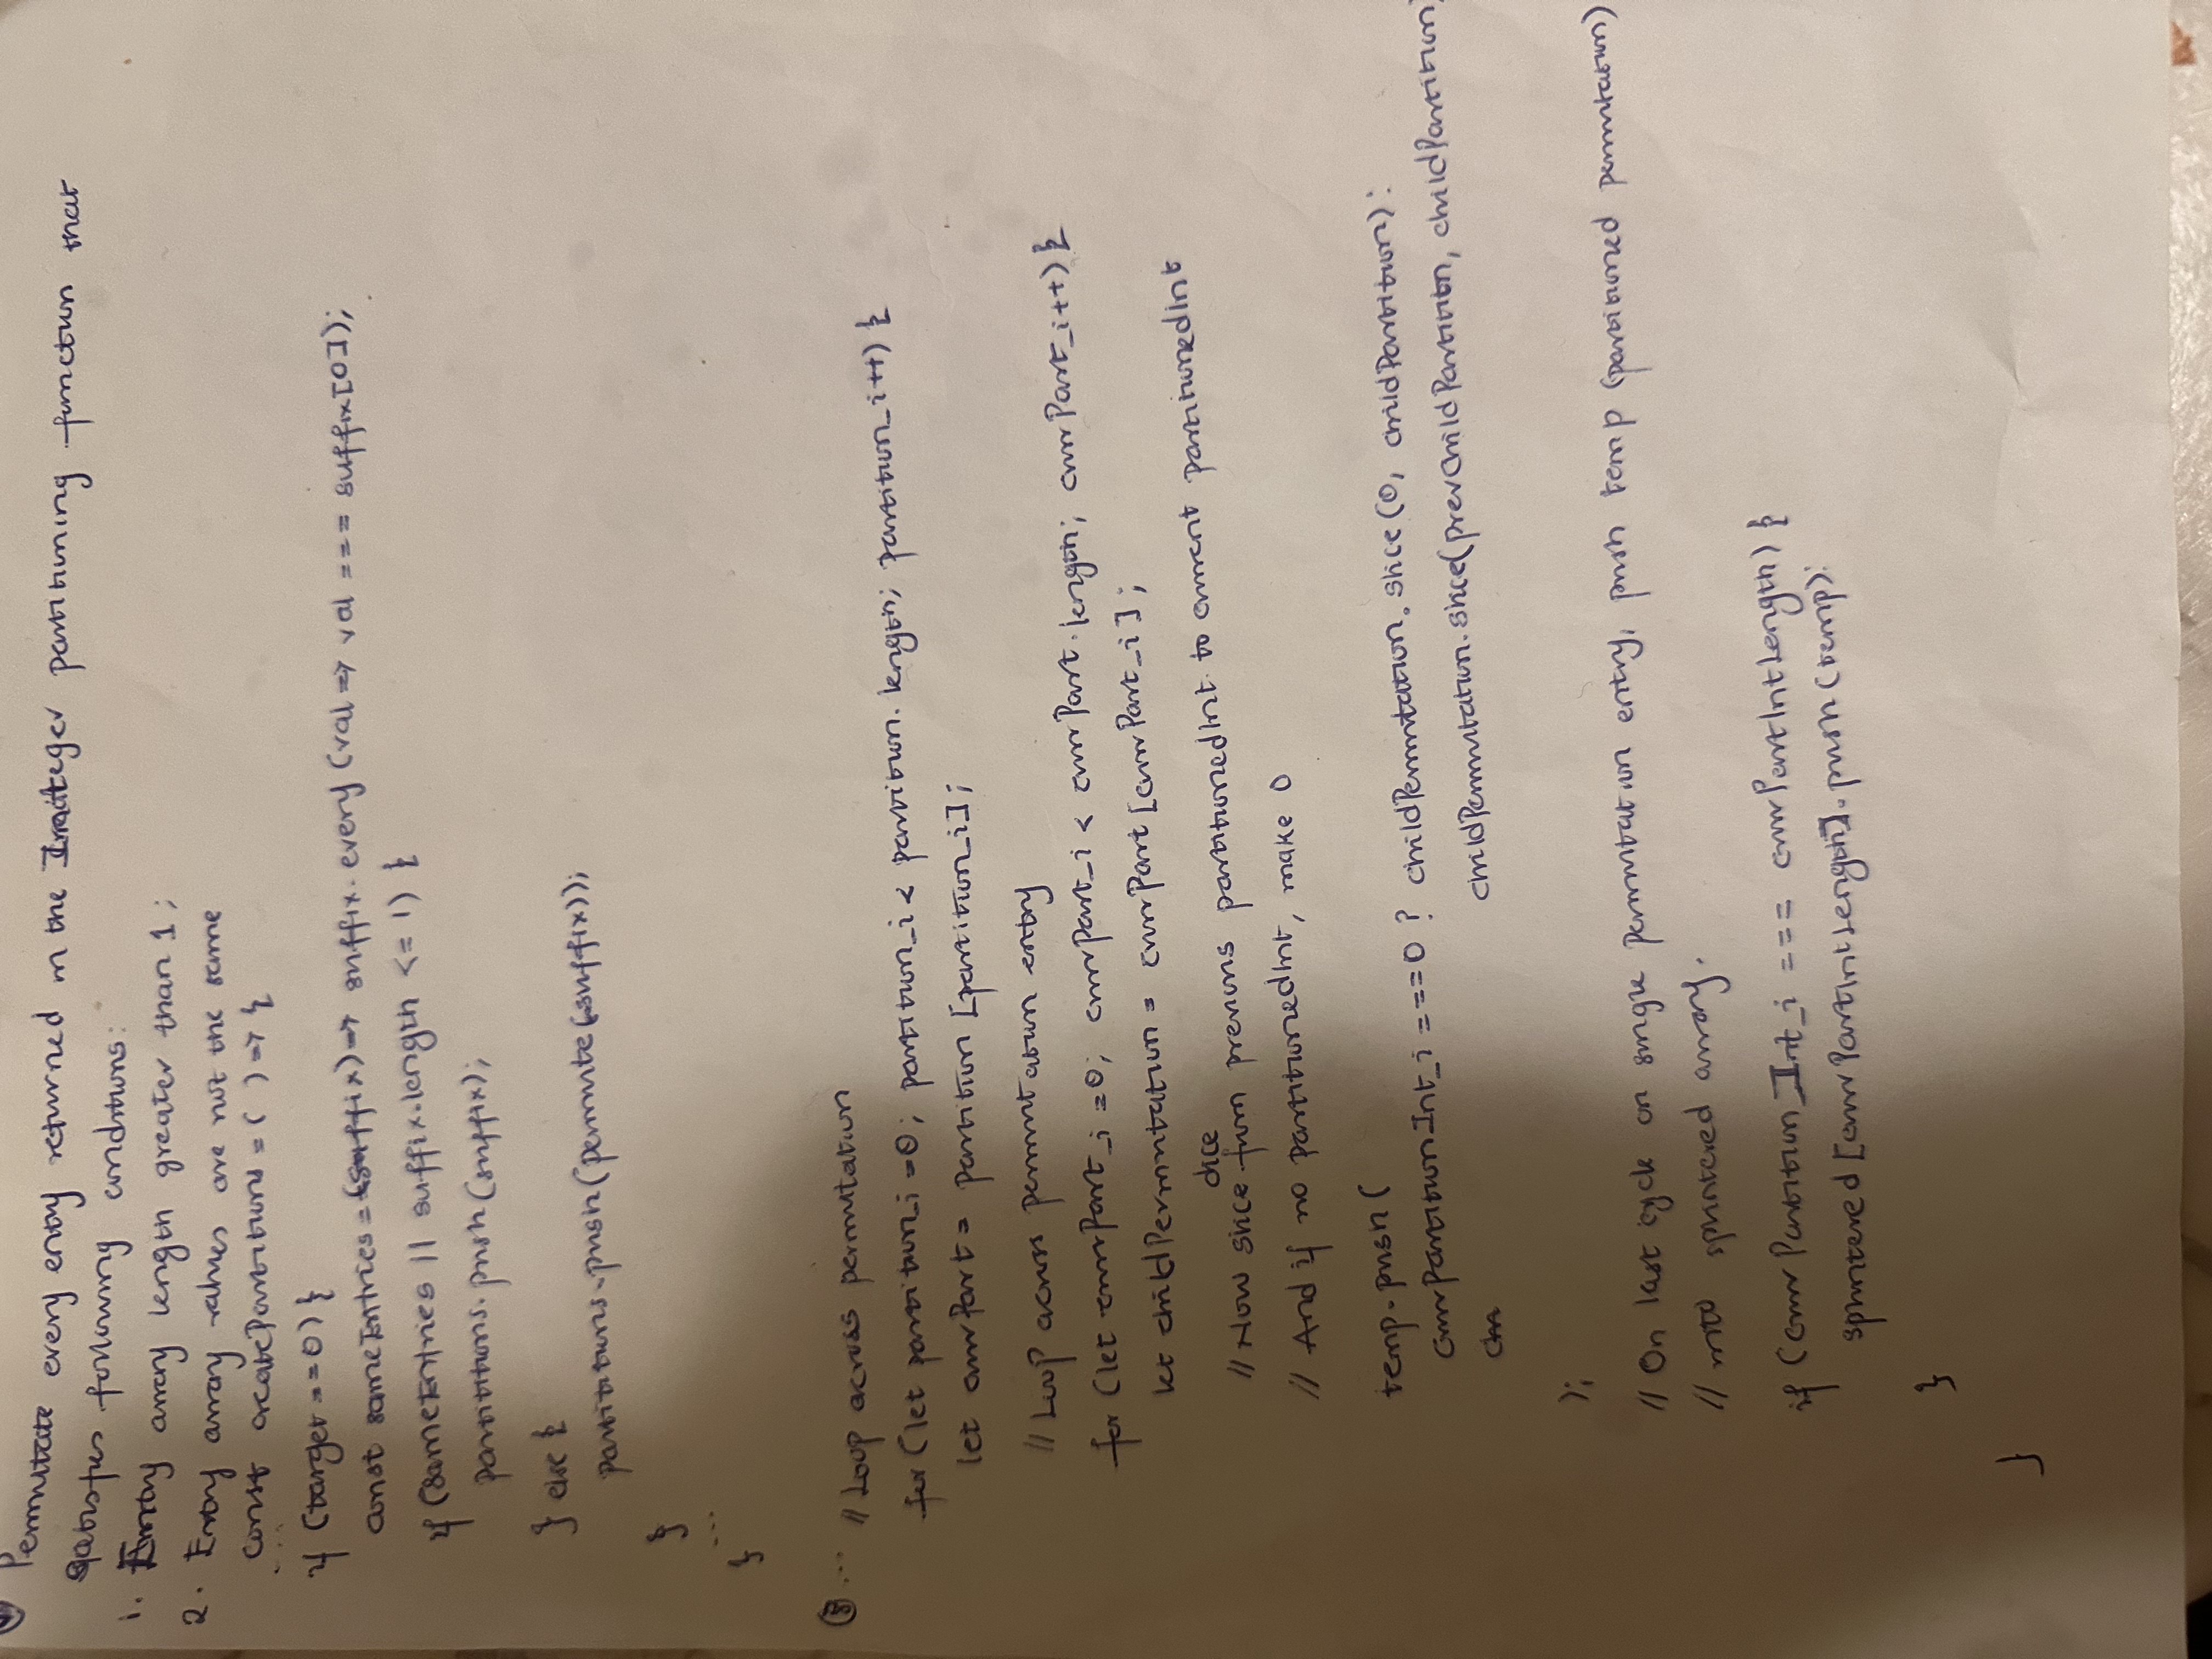 Permutate every entry returned in the Integer partitioning function that
satisfies following conditions:
1. Entry array length greater than 1;
2. Entry array values are not the same
const createPartitions = ( ) => {
...
if (target == 0) {
const sameEntries = (suffix) => suffix.every (val => val === suffix[0]);
if (sameEntries || suffix.length <= 1) {
partititions.push (suffix);
} else {
partititions.push (permute (suffix));
}
...
}
... // Loop across permutation
for (let partition_i = 0; partition_i < partition.length; partition_i++) {
let currPart = partition [partition_i];
// Loop across permutation entry
for (let currPart_i = 0; currPart_i < currPart.length; currPart_i++) {
let childPermutation = currPart [currPart_i];
dice
// Now slice from previous partitionedInt to current partitionedInt
// And if no partitionedInt, make 0
temp.push (
currPartitionInt_i === 0 ? childPermutation.slice (0, childPartition) :
childPermutation.slice(prevChildPartititn, childPartition)
);
// On last cycle on single permutation entry, push temp (partitioned permutation)
// into splintered array.
if (currPartition_Int_i === currPartIntLength) {
splintered [currPartIntLength].push (temp):
}
}